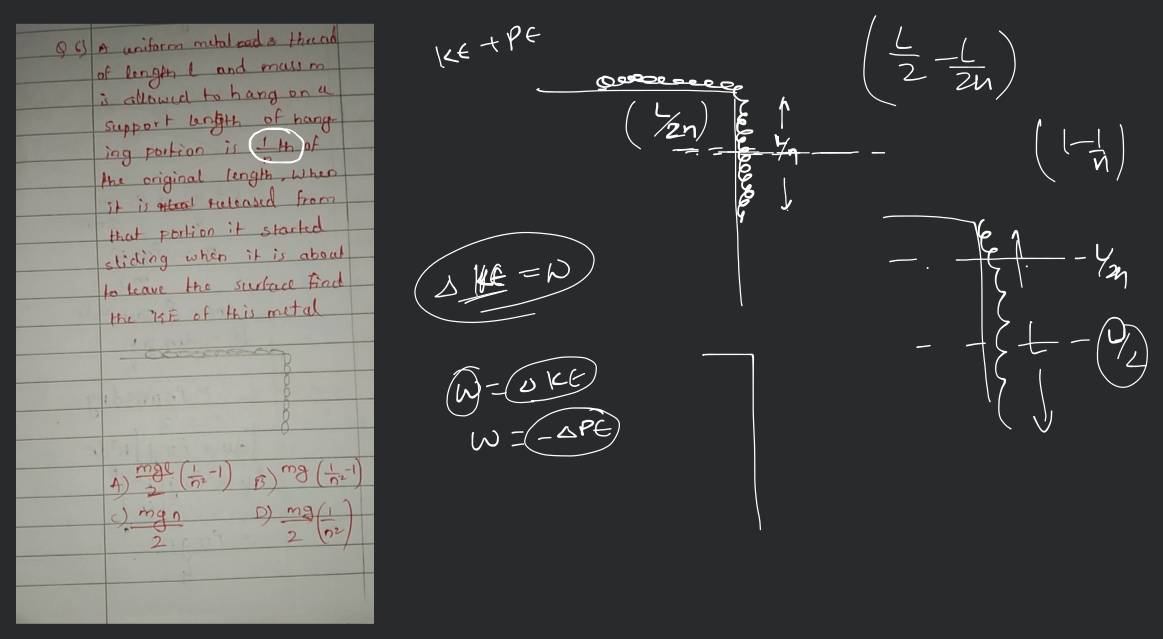 Q 6) A uniform metal thread
of length l and mass m
is allowed to hang on a
support length of hang-
ing portion is 1/n th of
the original length, when
it is released from
that portion it started
sliding when it is about
to leave the surface find
the KE of this metal
A) mgl/2 (1/n² -1) B) mg (1/n² -1)
C) mgn/2 D) mg/2 (1/n²)
KE + PE
(L/2n)
L/n
(L/2 - L/2n)
(1 - 1/n)
Δ KE = W
W = Δ KE
W = -ΔPE
L/2n
L
L/2